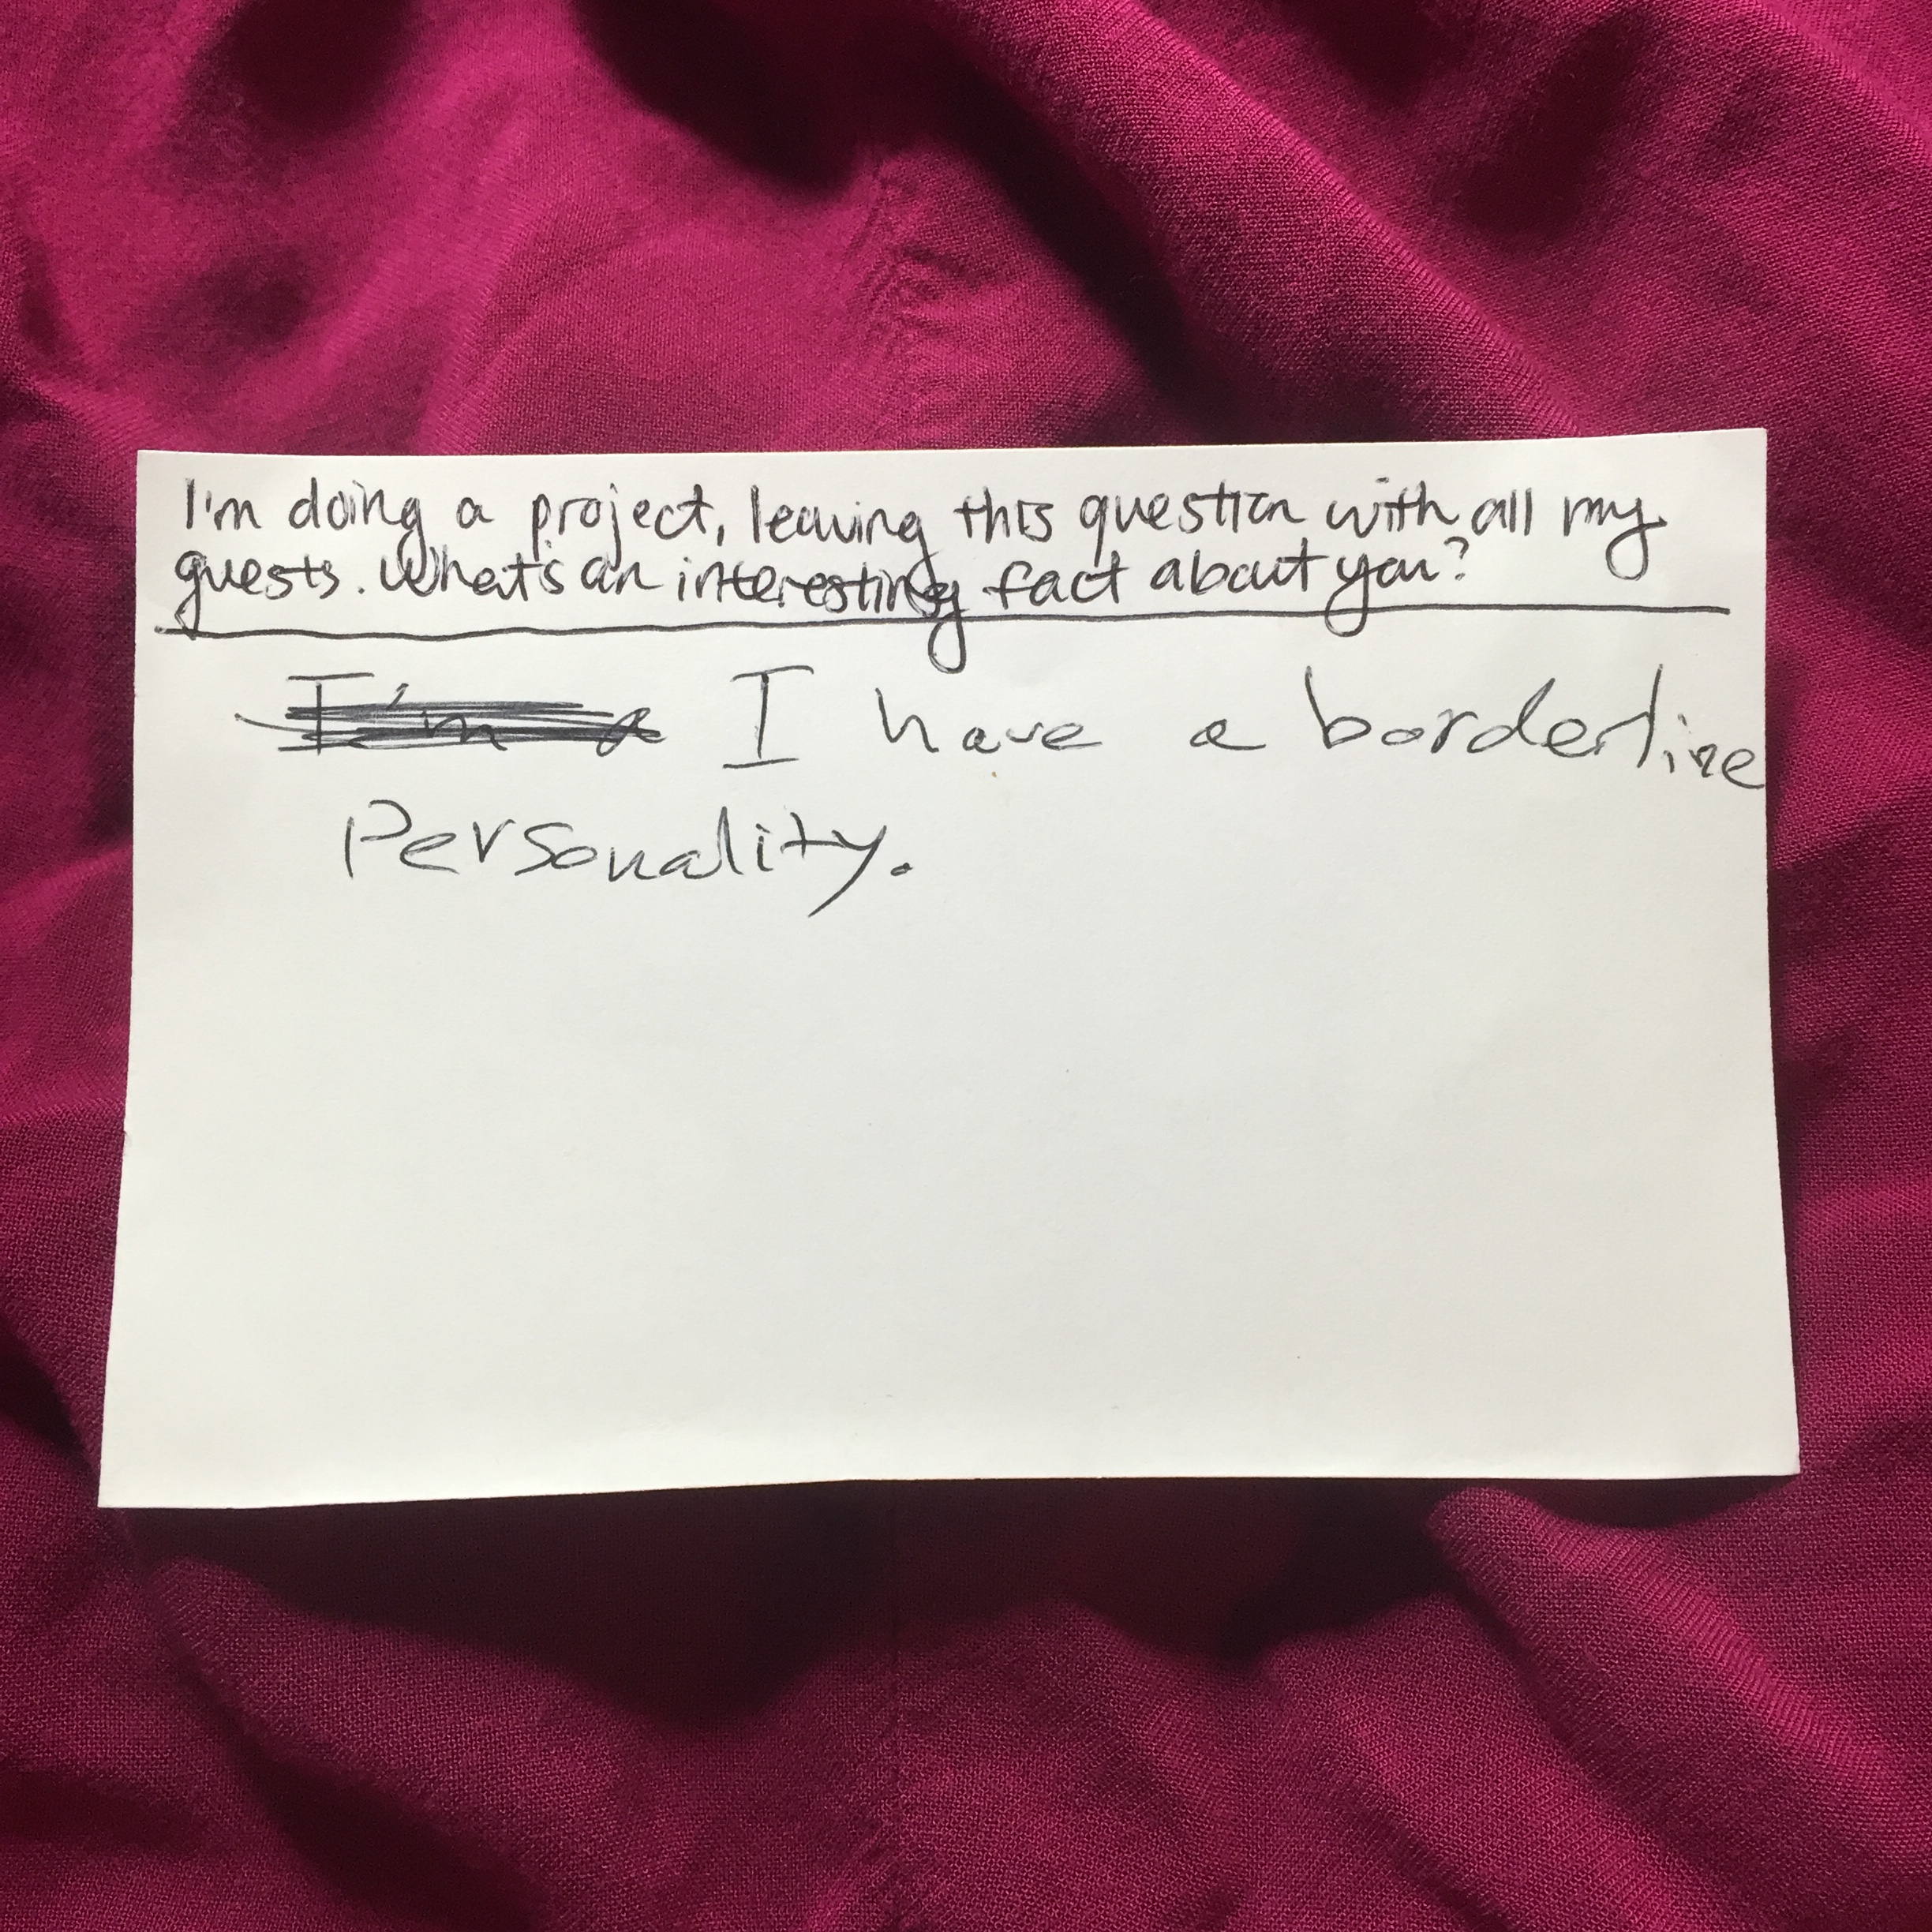 I'm doing a project, leaving this question with all my
guests. What's an interesting fact about you?
I'm a I have a borderline
Personality.